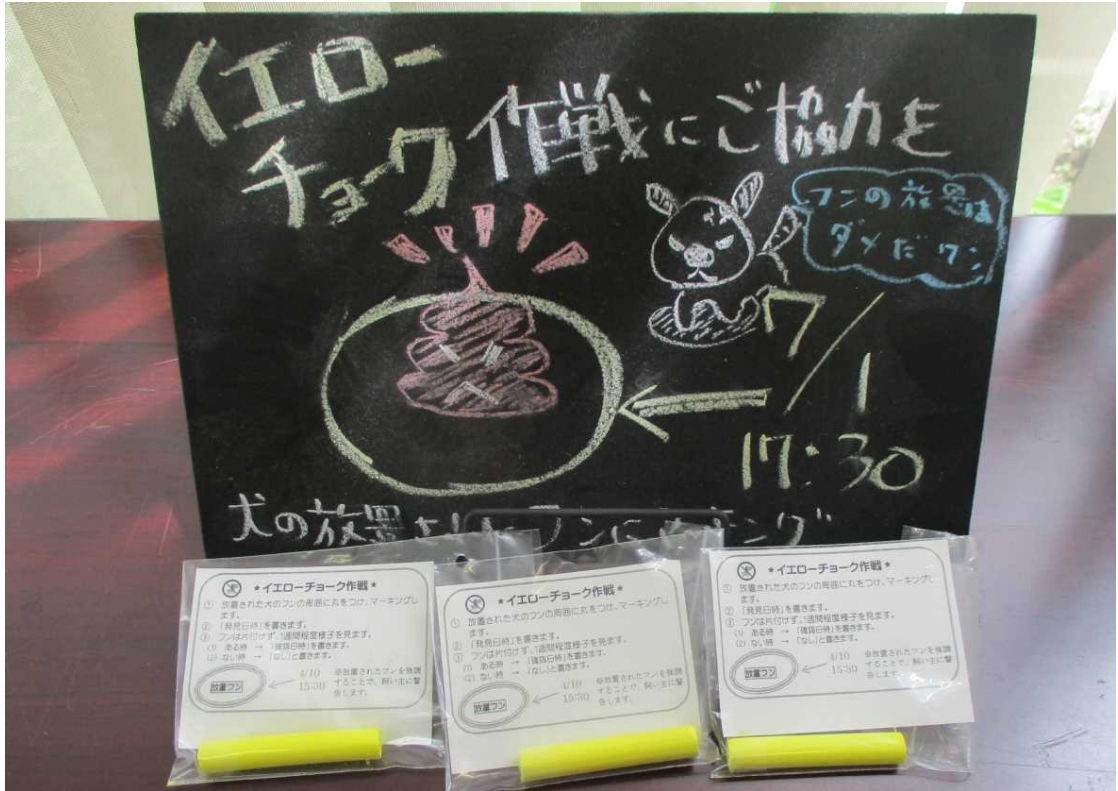 イエロー
チョーク
作戦にご協力を
フンの放置は
ダメだワン
7/1
17:30
犬の放置されたフンにマーキング
★イエローチョーク作戦★
① 放置された犬のフンの周囲に丸をつけ、マーキングし
ます。
② 「発見日時」を書きます。
③ フンは片付けず、1週間程度様子を見ます。
(1) ある時 → 「確認日時」を書きます。
(2) ない時 → 「なし」と書きます。
放置フン
4/10
15:30
※放置されたフンを強調
することで、飼い主に警
告します。
★イエローチョーク作戦★
① 放置された犬のフンの周囲に丸をつけ、マーキングし
ます。
② 「発見日時」を書きます。
③ フンは片付けず、1週間程度様子を見ます。
(1) ある時 → 「確認日時」を書きます。
(2) ない時 → 「なし」と書きます。
放置フン
4/10
15:30
※放置されたフンを強調
することで、飼い主に警
告します。
★イエローチョーク作戦★
① 放置された犬のフンの周囲に丸をつけ、マーキングし
ます。
② 「発見日時」を書きます。
③ フンは片付けず、1週間程度様子を見ます。
(1) ある時 → 「確認日時」を書きます。
(2) ない時 → 「なし」と書きます。
放置フン
4/10
15:30
※放置されたフンを強調
することで、飼い主に警
告します。